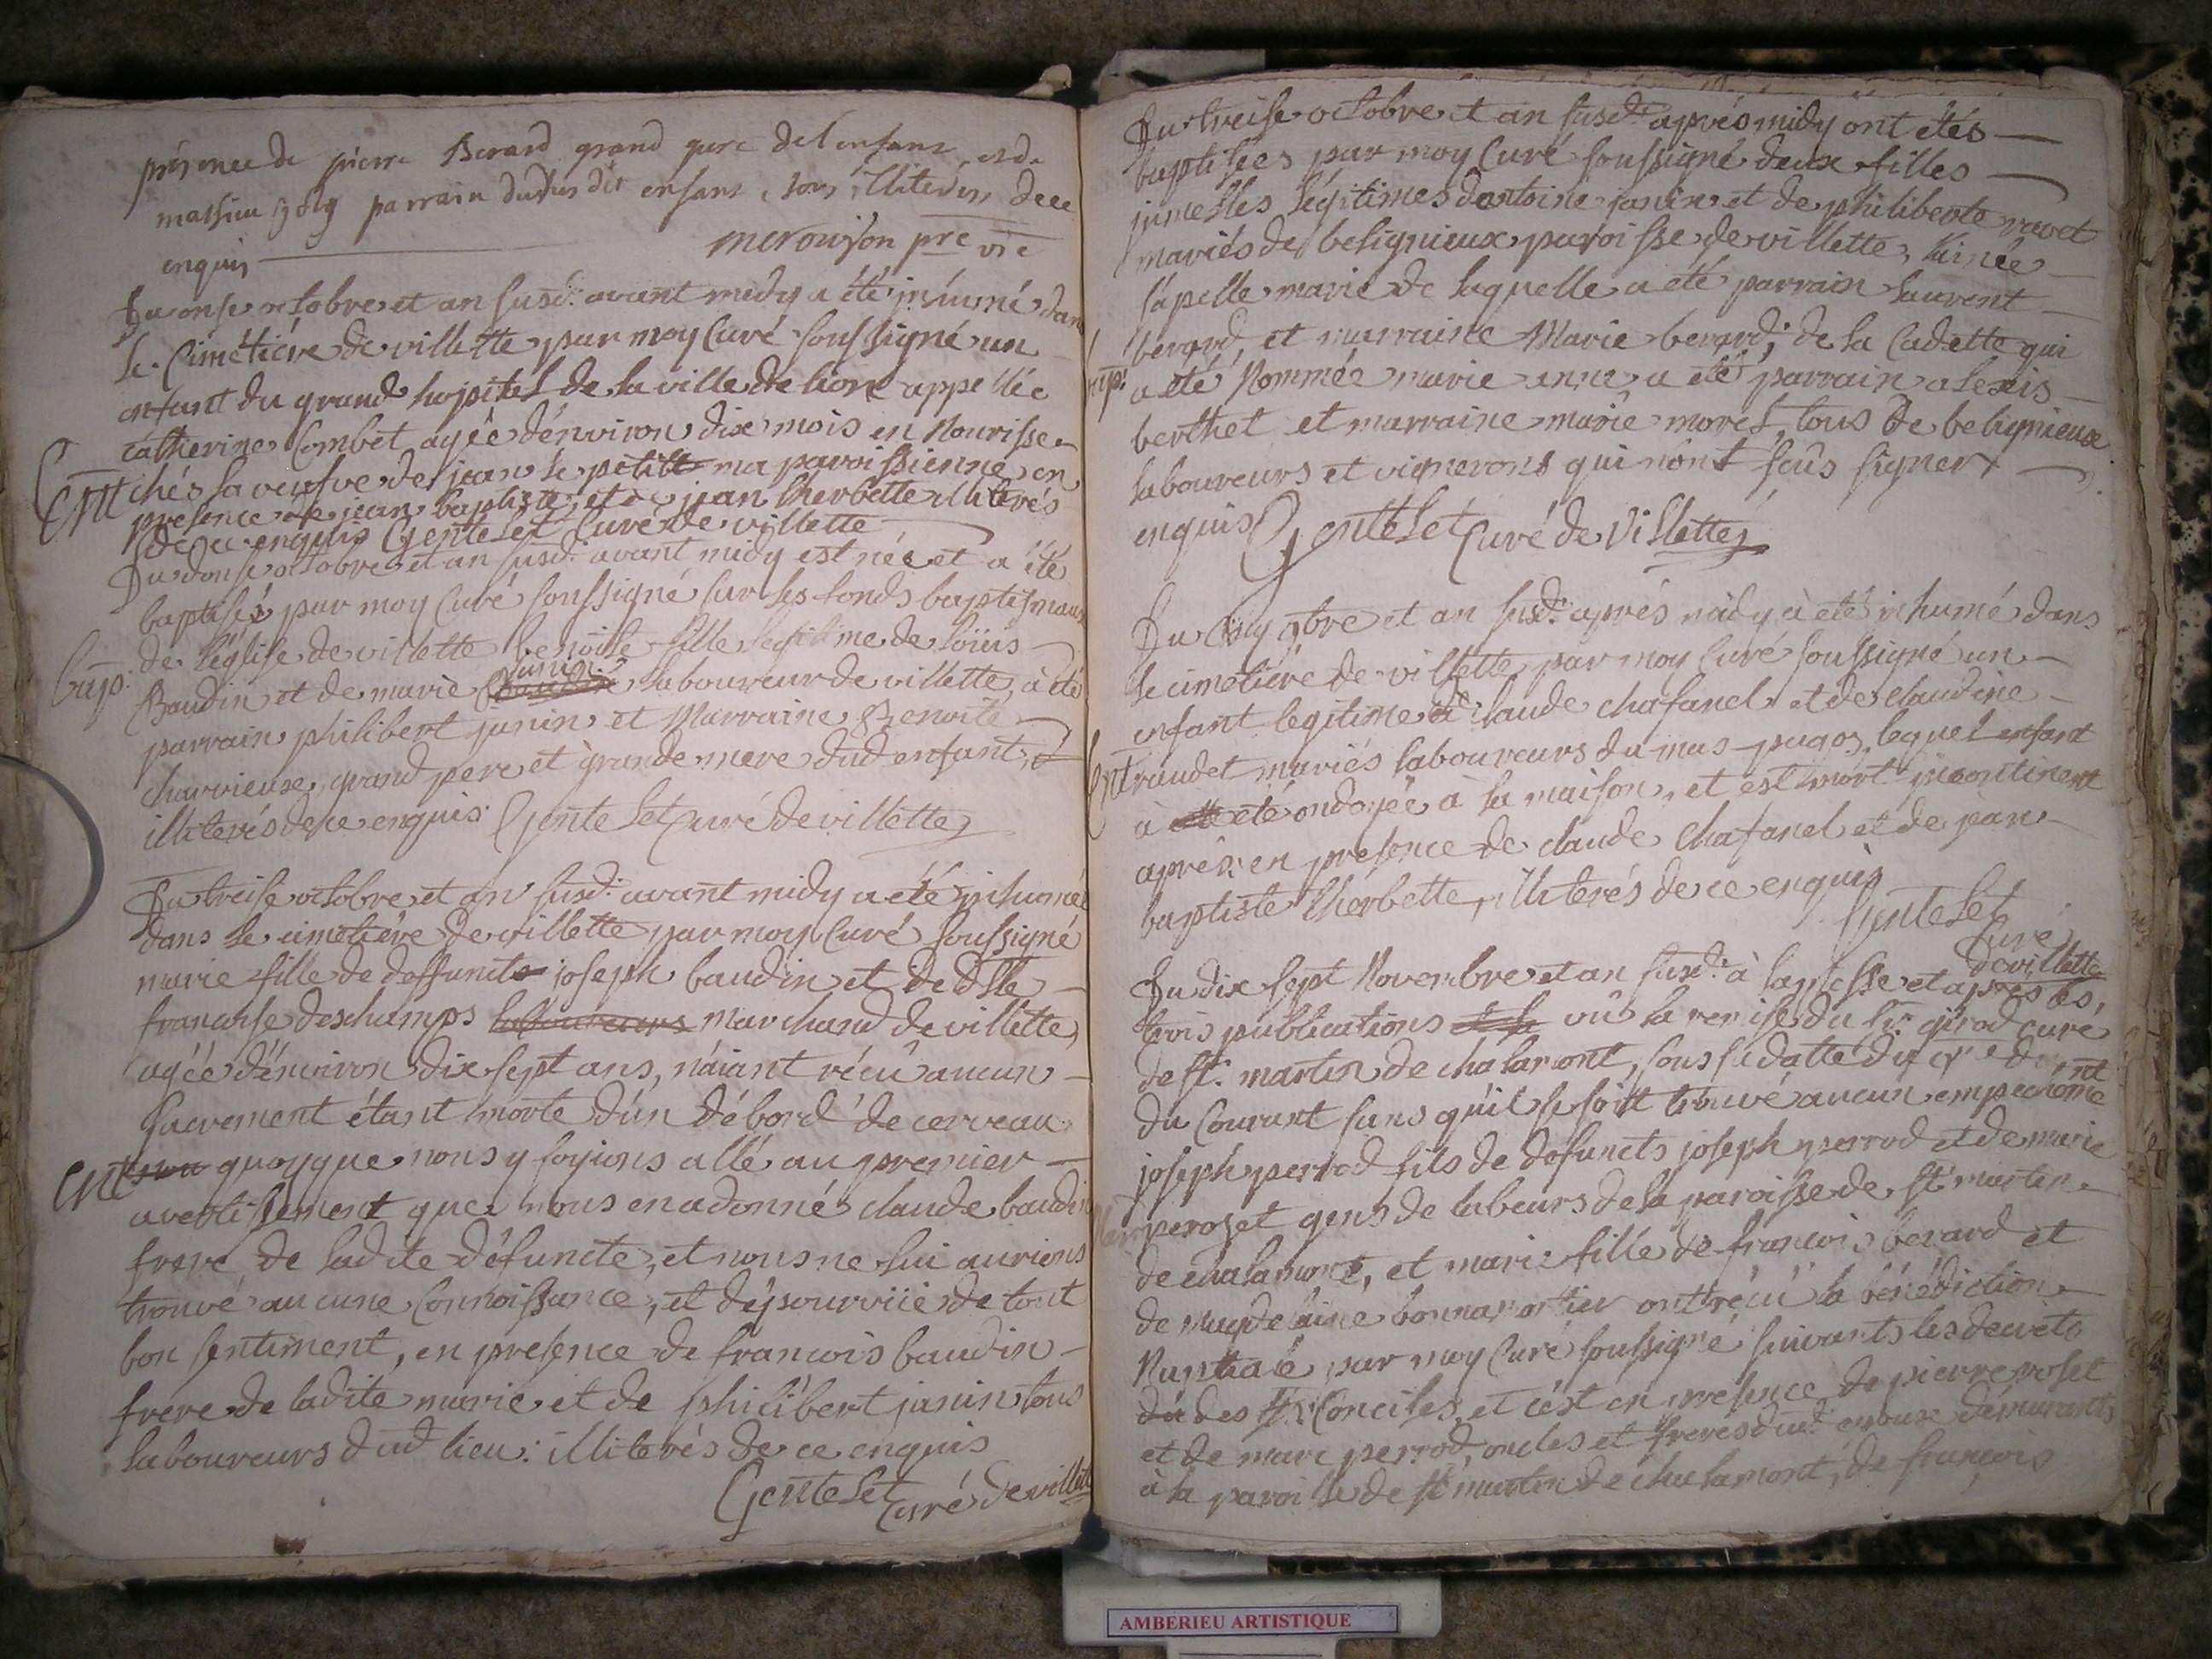 presence de pierre Berard grand pere de l'enfant et de
mathieu parrain du susdit enfant, tous illiteres de ce
enquis
pre vre
Du onse octobre et an susd: avant midy a été inhumé dans
le Cimétiére de villette par moy Curé soussigné un
enfant du grand hopital de la ville de lion appellée
catherine Combet agée dénviron dix mois en Nourisse
Ent chés la veufve de jean le petit ma paroissienne, en
presence de jean baptiste, et de jean lherbette illiterés
de ce enquis Gentelet Curé de villette
Du douse octobre et an susd: avant midy est née et a été
baptisés par moy Curé soussigné sur les fonds baptismaux
de l'église de villette benoite fille legitime de loüis
janin
Bap: Baudin et de marie laboureur de villette, à été
parrain philibert janin et Marraine Benoite
charvieux, grand pere et grande mere dud enfant, et
illiterés de ce enquis Gentelet Curé de villette
Du treise octobre et an susd: avant midy a été inhumée
dans le cimetiére de villette par moy Curé soussigné
marie fille de deffunct joseph baudin et de dlle
francoise deschamps laboureurs marchand de villette
agéé dénviron dix sept ans, n'aiant récû aucun
Sacrement étant morte d'ùn débord de cerveau
Ent quoyque nous y soyions allé au premier
avertissement que nous en a donné claude baudin
frere de ladite défuncte, et nous ne lui aurions
trouvé aucune Connoissance, et dépourvüe de tout
bon sentiment, en presence de francois baudin
frere de ladite marie et de philibert janin tous
laboureurs dud lieu: illiterés de ce enquis
Gentelet Curé de villette
Du treise octobre et an susd: aprés midy ont étés
baptisées par moy Curé soussigné deux filles
jumelles légitimes dantoine janin et de philiberte ravet
mariés de belignieux paroisse de villette, l'ainée
s'apelle marie de laquelle a été parrain laurent
berard et marraine Marie berard; de la Cadette qui
Bap: a été Nommée marie anne a été parrain alexis
berthet et marraine marie morel, tous de belignieux
laboureurs et vignerons qui n'ont sçûs signer
enquis Gentelet Curé de Villette
Du Cinq 9bre et an susd: aprés midy à eté inhumé dans
le cimetiére de villette par moy Curé soussigné un
enfant legitime de claude chafanel et de claudine
Ent raudet mariés laboureurs du mas pagos, lequel enfant
à été ondoyée à la maison, et est mort incontinent
aprés: en presence de claude Chafanel et de jean
baptiste lherbette, illiterés de ce enquis
Gentelet
Curé
de villette
Du dix sept Novembre et an susd: à la messe et aprés les
trois publications vû la remise du Sr: girod curé
de st: martin de chalamont, sous sa datte du
du Courant sans qu'il se soit trouvé aucun empechement
joseph perrod fils de defuncts joseph perrod et de marie
peroset gens de labeurs de la paroisse de st: martin
de chalamont, et marie fille de françois berard et
de magdelaine bonnamortier ont réçû la bénédiction
Nuptiale par moy Curé soussigné suivants les decrets
du des Sts: Conciles, et c'est en presence de pierre roset
et de marc perrod, oncles et freres dud: epoux démurants
à la paroisse de st martin de chalamont, de françois
AMBERIEU ARTISTIQUE